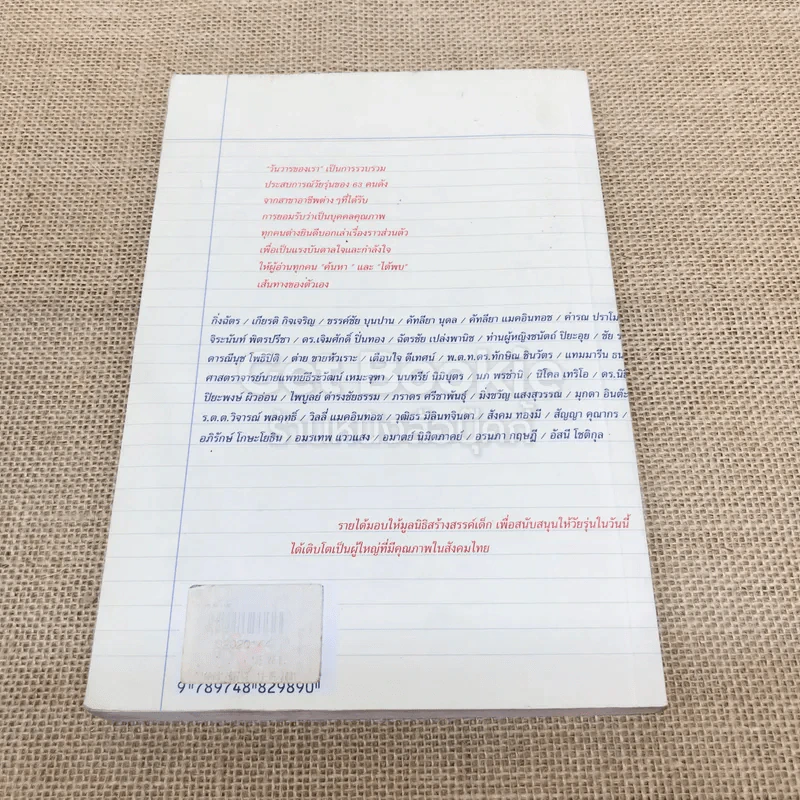 "วันวารของเรา" เป็นการรวบรวม
ประสบการณ์วัยรุ่นของ 63 คนดัง
จากสาขาอาชีพต่าง ๆที่ได้รับ
การยอมรับว่าเป็นบุคคลคุณภาพ
ทุกคนต่างยินดีบอกเล่าเรื่องราวส่วนตัว
เพื่อเป็นแรงบันดาลใจและกำลังใจ
ให้ผู้อ่านทุกคน "ค้นหา " และ "ได้พบ"
เส้นทางของตัวเอง
กิ่งฉัตร / เกียรติ กิจเจริญ / ขรรค์ชัย บุนปาน / คัทลียา นุดล / คัทลียา แมคอินทอช / คำรณ ปราโม
จิระนันท์ พิตรปรีชา / ดร.เจิมศักดิ์ ปิ่นทอง / ฉัตรชัย เปล่งพานิช / ท่านผู้หญิงชนัตถ์ ปิยะอุย / ชัย ร
ดารณีนุช โพธิปิติ / ต่าย ขายหัวเราะ / เตือนใจ ดีเทศน์ / พ.ต.ท.ดร.ทักษิณ ชินวัตร / แทมมารีน ธน
ศาสตราจารย์นายแพทย์ธีระวัฒน์ เหมะจุฑา / นนทรีย์ นิมิบุตร / นภ พรชำนิ / นิโคล เทริโอ / ดร.นิส
ปิยะพงษ์ ผิวอ่อน / ไพบูลย์ ดำรงชัยธรรม / ภราดร ศรีชาพันธุ์ / มิ่งขวัญ แสงสุวรรณ / มุกดา อินต๊ะ
ร.ต.ต.วิจารณ์ พลฤทธิ์ / วิลลี่ แมคอินทอช / วุฒิธร มิลินทจินดา / สังคม ทองมี / สัญญา คุณากร /
อภิรักษ์ โกษะโยธิน / อมรเทพ แววแสง / อมาตย์ นิมิตภาคย์ / อรนภา กฤษฎี / อัสนี โชติกุล
GetBookie
ร้านหนังสือบุ๊คกี้
รายได้มอบให้มูลนิธิสร้างสรรค์เด็ก เพื่อสนับสนุนให้วัยรุ่นในวันนี้
ได้เติบโตเป็นผู้ใหญ่ที่มีคุณภาพในสังคมไทย
9 789748 829890